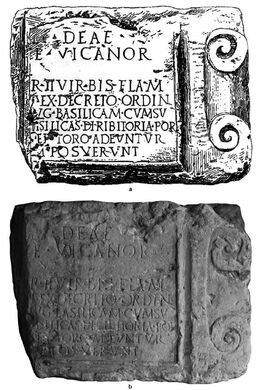 DEAE
E VICANOR
R·IIVIR·BIS·FLAM
EX·DECRETO·ORDIN
VG·BASILICAM·CVMSV
SILICAS·DIRIBITORIA·POR
ET·TORO·ADEVNTVR
A POSVERVNT
a
DEAE
E VICANOR
R·IIVIR·BIS·FLAM
EX·DECRETO·ORDIN
VG·BASILICAM·CVMSV
POSVERVNT
b